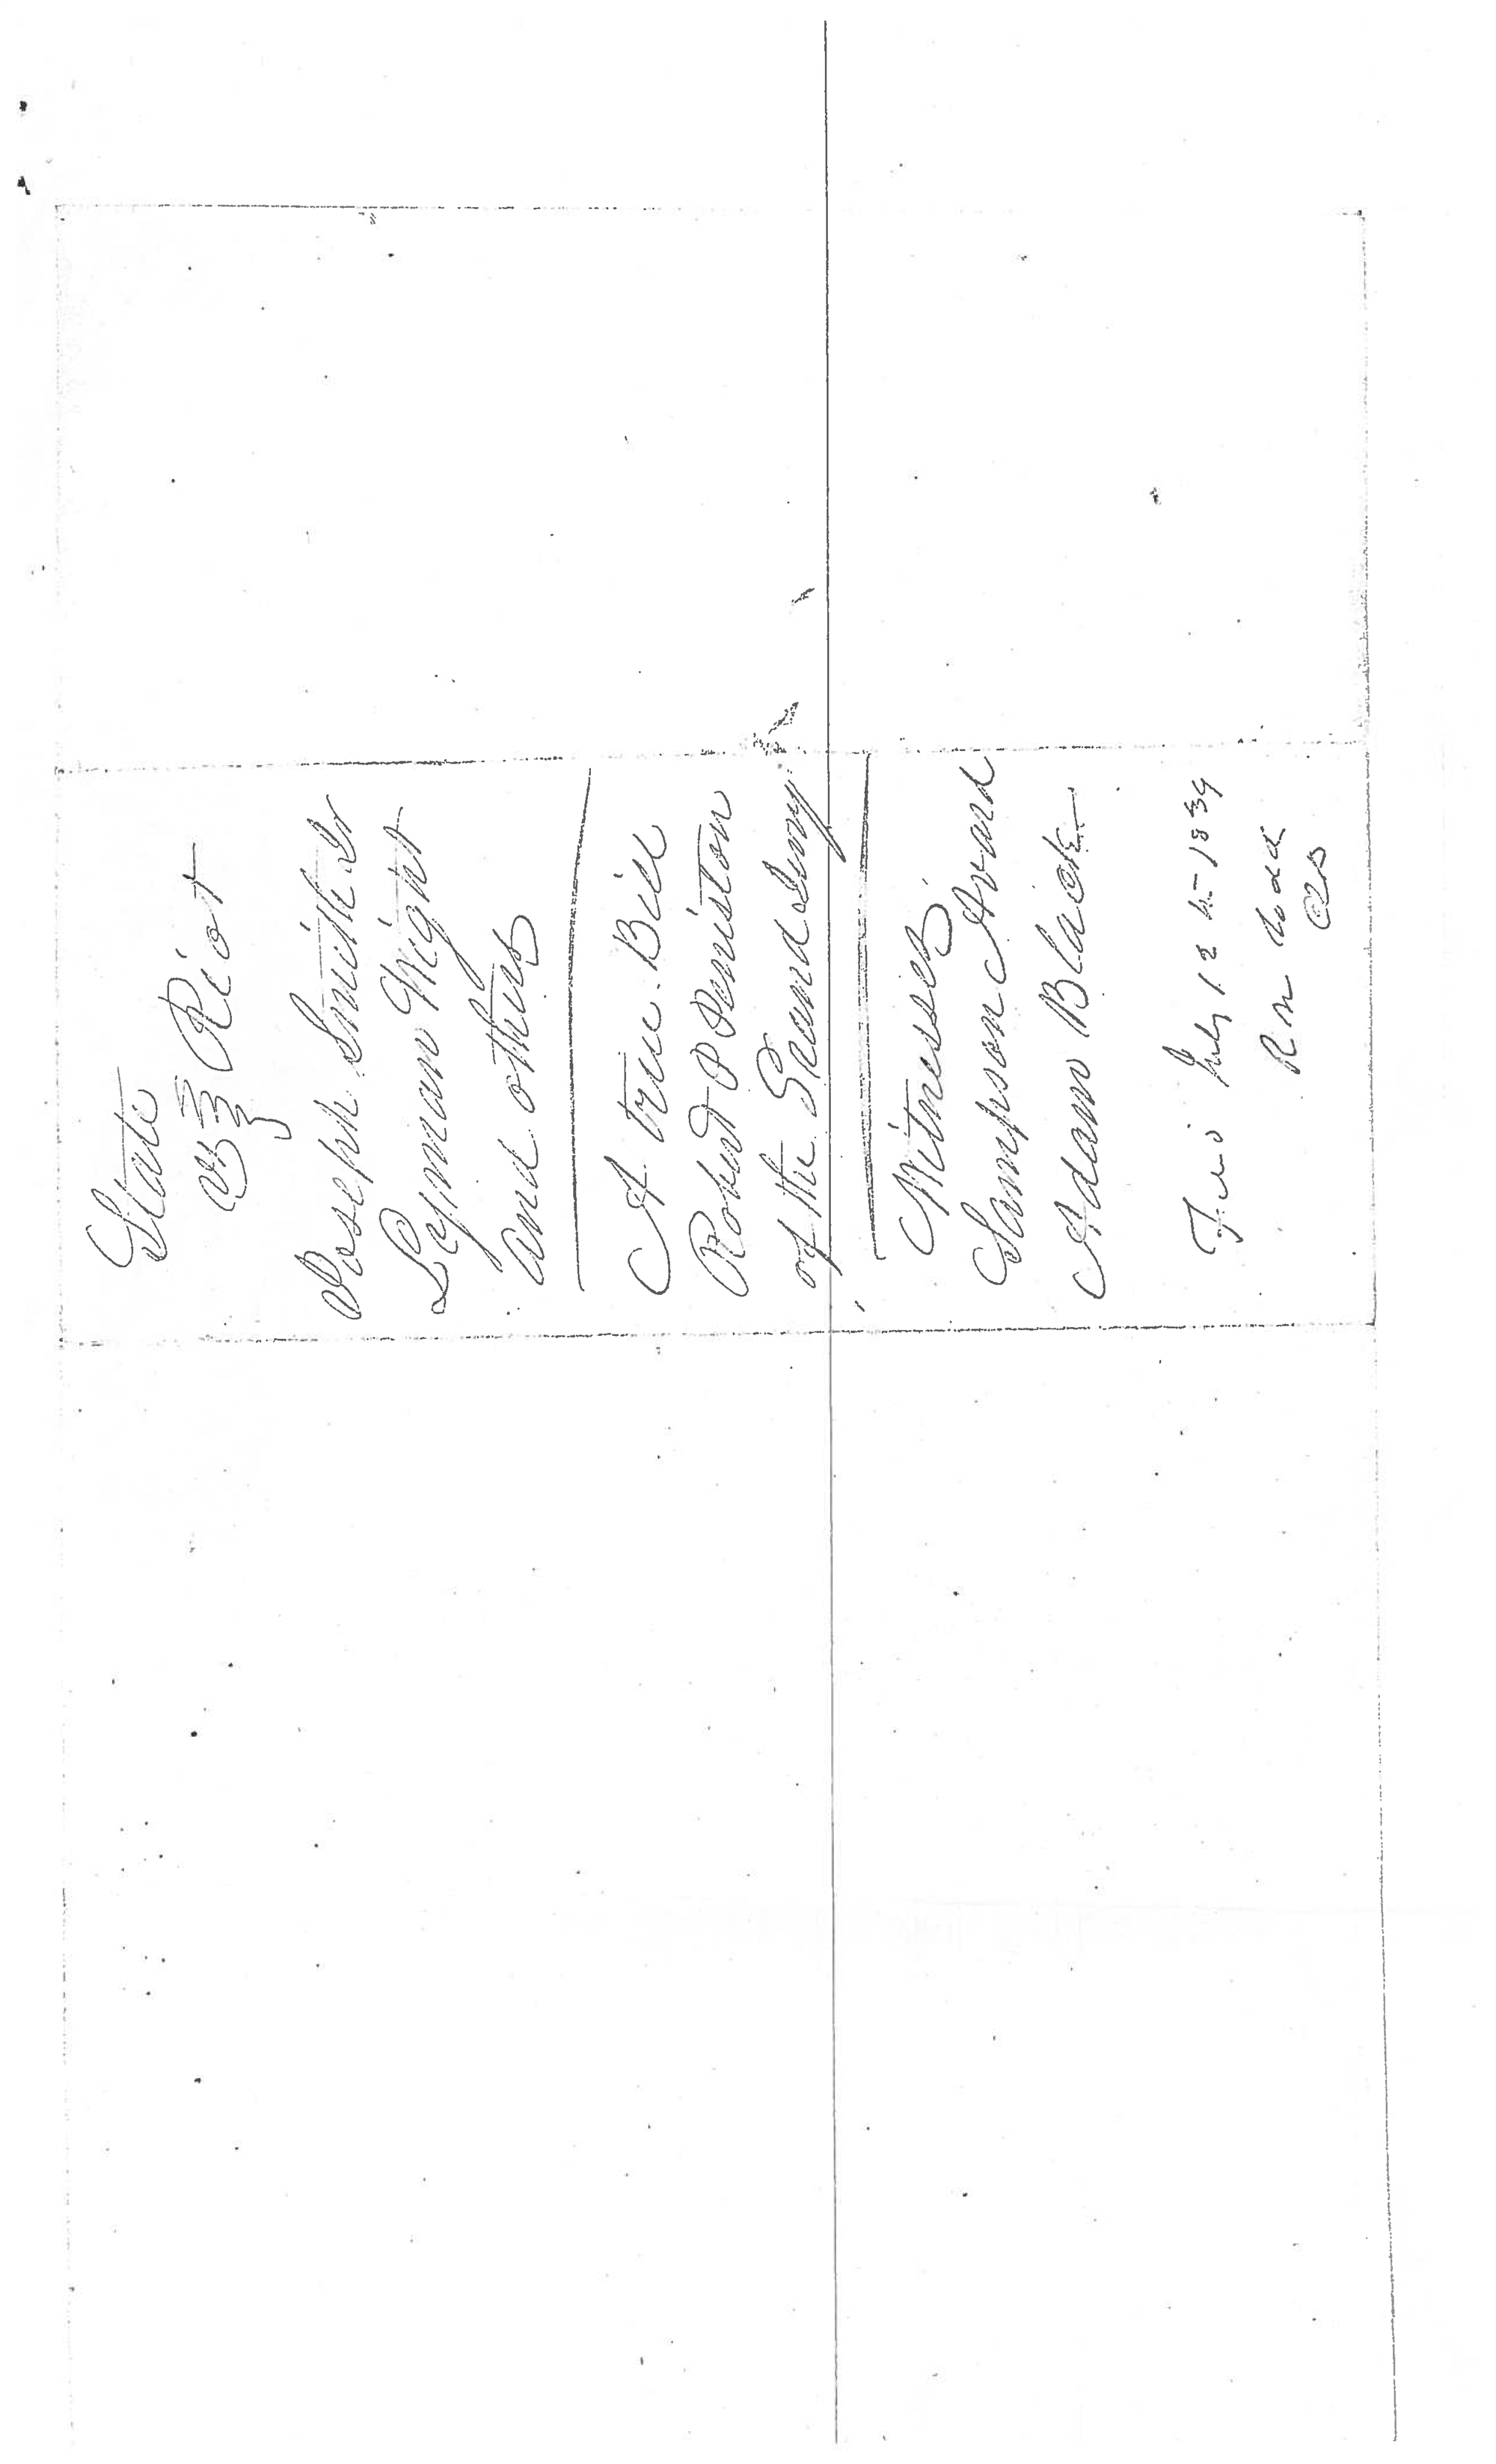 State
vs } Riot
Joseph Smith Jr
Lyman Wight
and others
A true Bill
Robert P Peniston
of the Grand Jury
Witnesses
Sampson Avard
Adam Black
July 12 1839
R